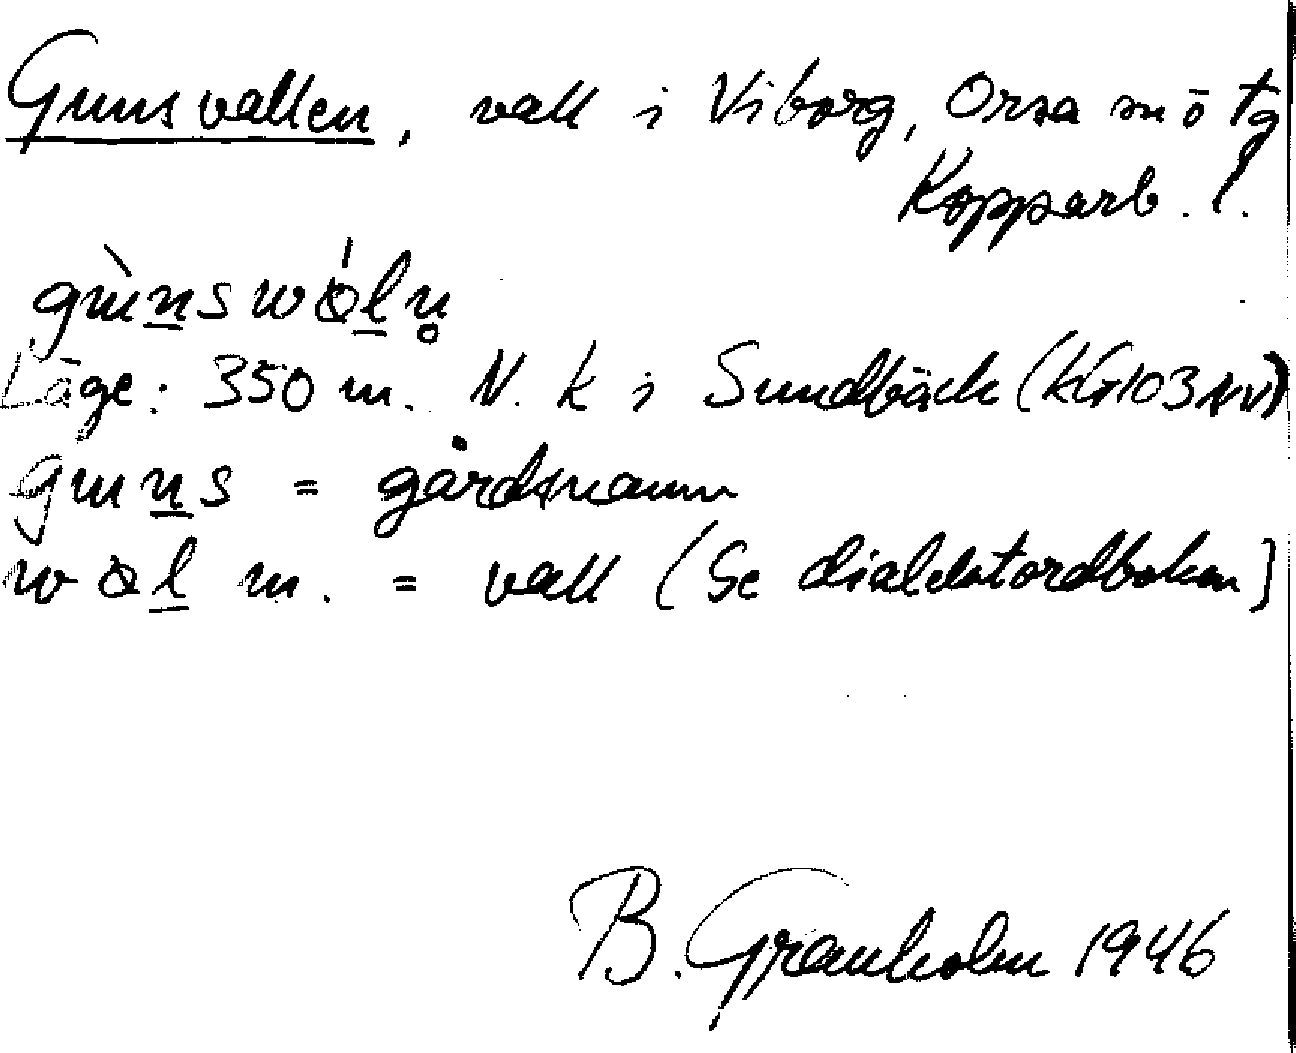 Gunsvallen, vall i Viborg, Orsa sn ö tg
Kopparb. l.
gùn̲swól̲n̥
Läge: 350 m. N. k i Sundbäck (KG103NV)
gun̲s = gårdsnamn
wål̲ m. = vall (Se dialektordboken)
B. Granholm 1946